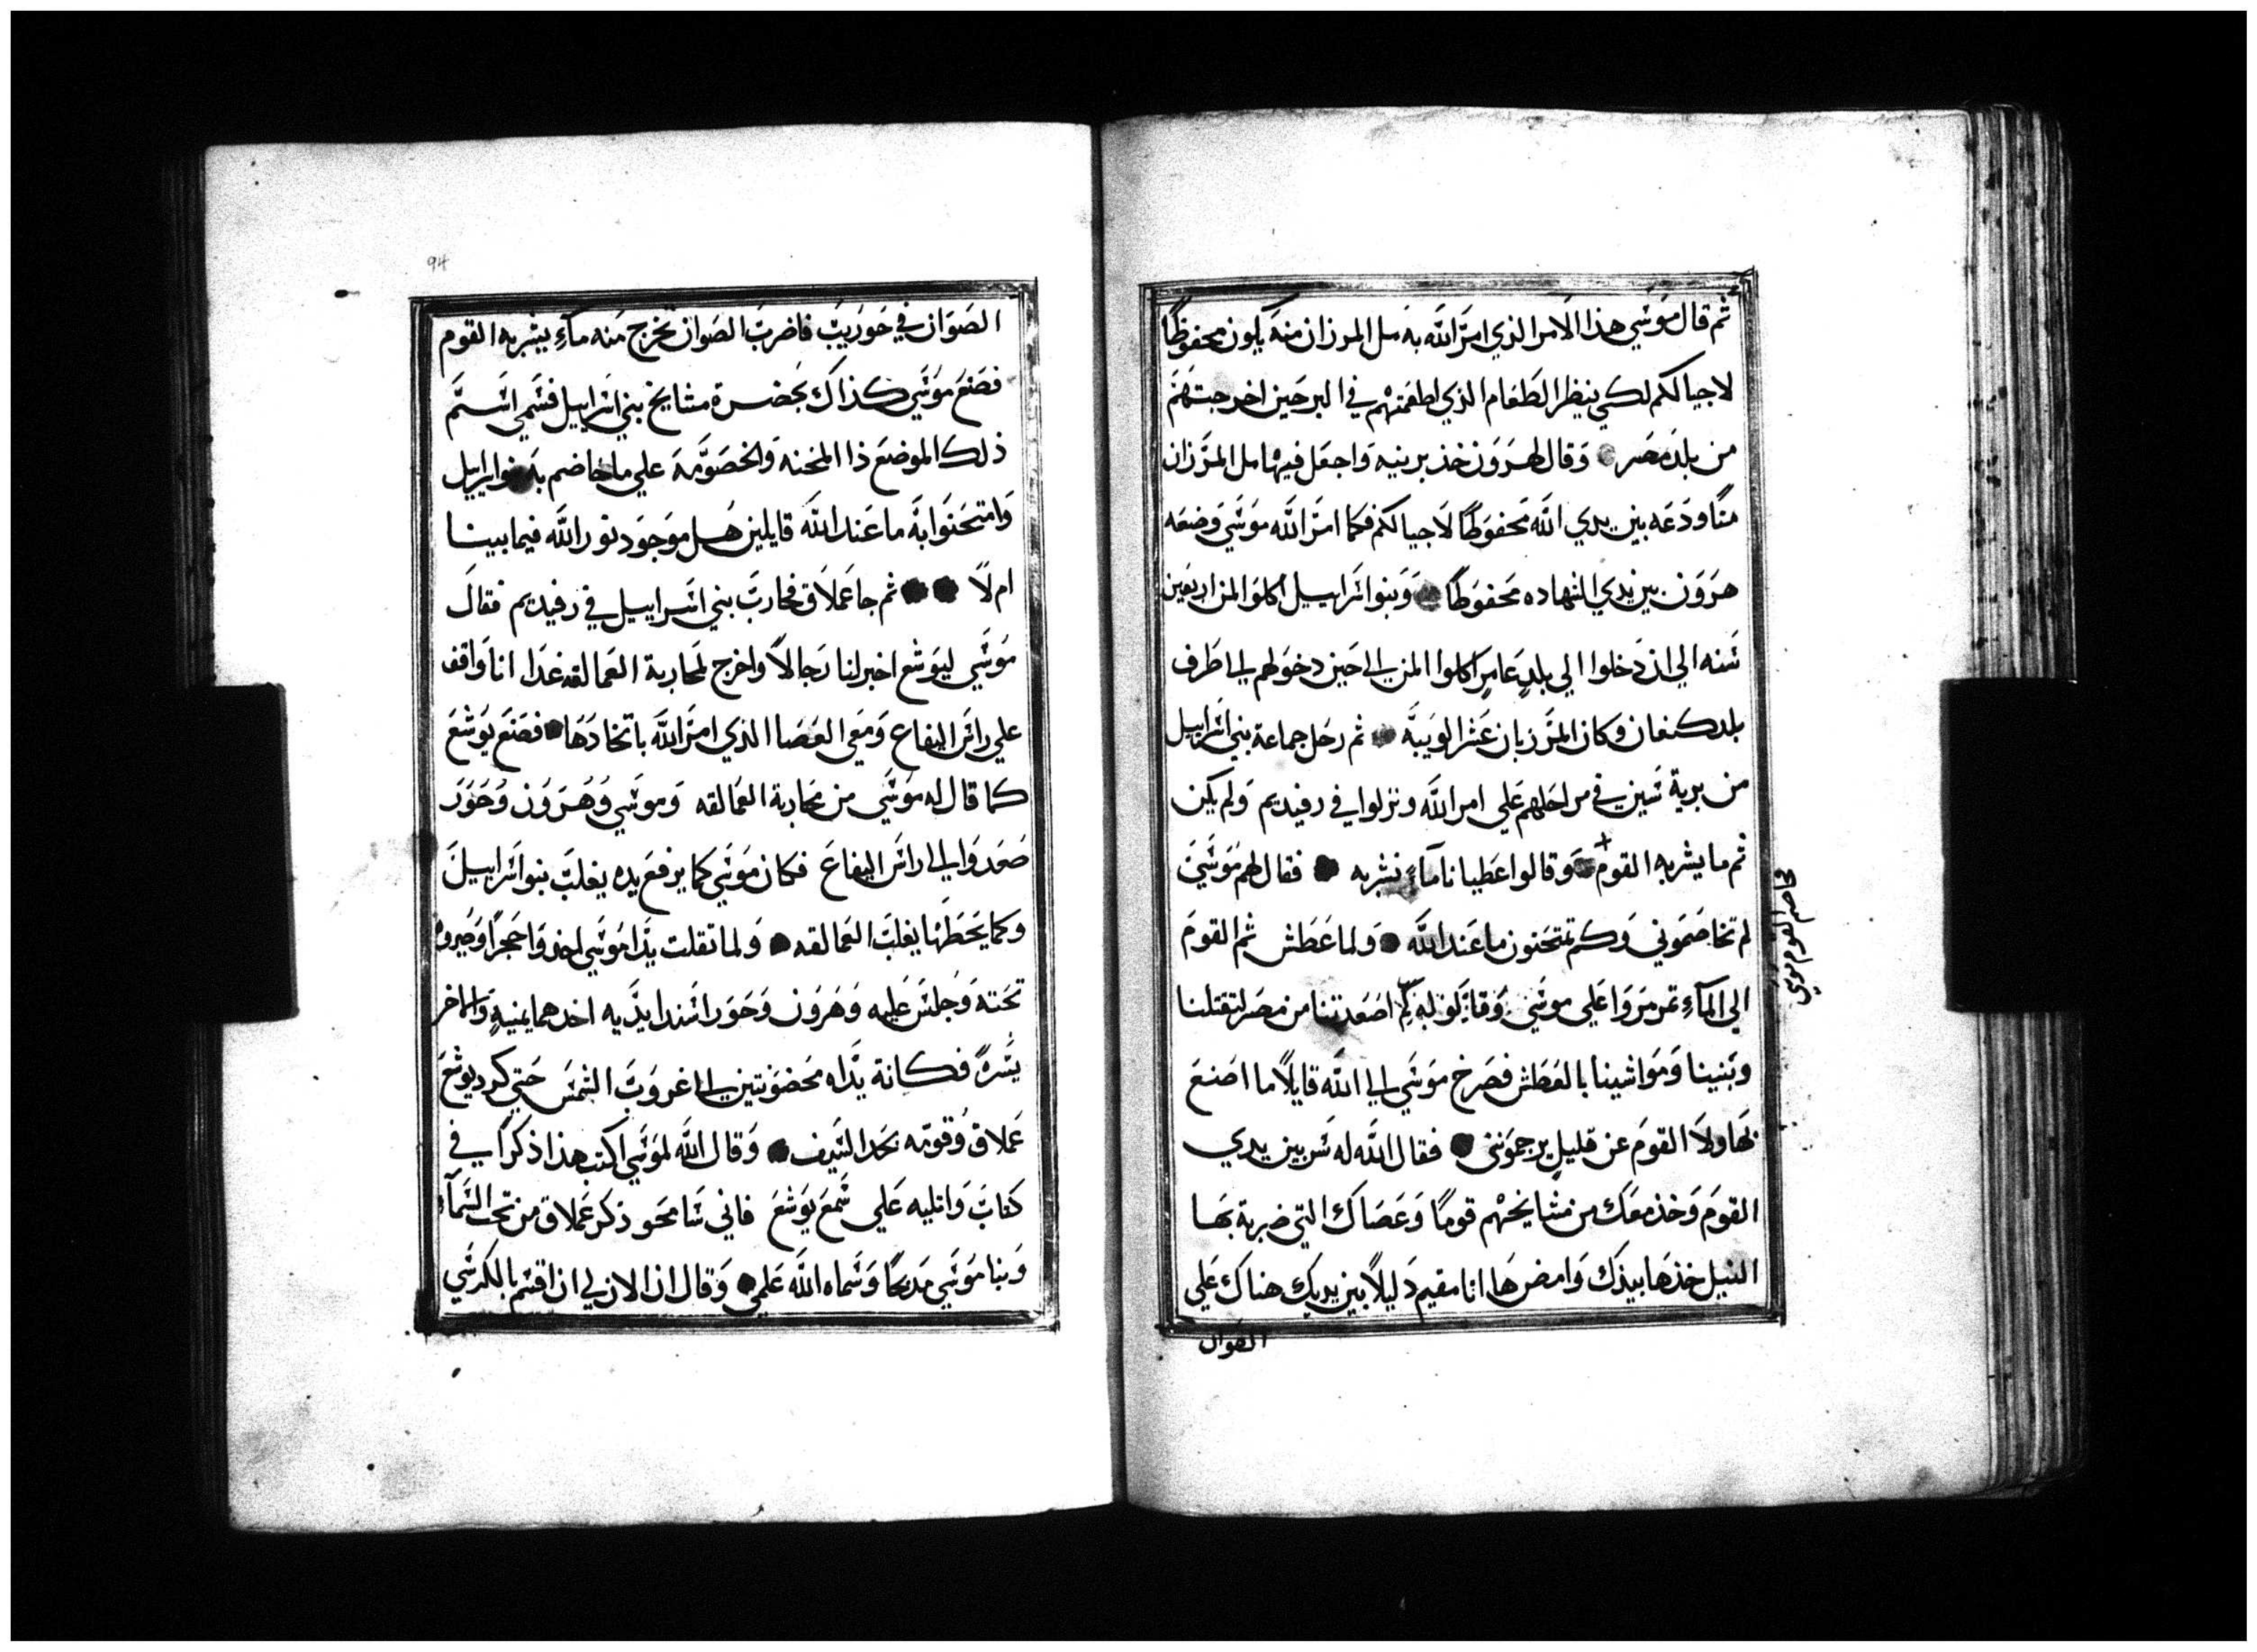 ثم قال موسي هذا الامر الذي امر الله به مل المرزان منه يكون محفوظًا
لاجيالكم لكي ينظر الطعام الذي اطعمتهم في البر حين اخرجتهم
من بلد مصر وقال لهرون خذ برنيه واجعل فيها مل المرزان
منًا ودعه بين يدي الله محفوظًا لاجيالكم فكما امر الله موسي وضعه
هرون بين يدي الشهاده محفوظًا وبنوا اسراييل اكلوا المن اربعين
سنه الي ان دخلوا الي بلدٍ عامرٍ اكلوا المن الي حين دخولهم الي طرف
بلد كنعان وكان المرزبان عشر الويبه ثم رحل جماعة بني اسراييل
من برية سين في مراحلهم علي امر الله ونزلوا في رفيديم ولم يكن
ثم ما يشربه القوم وقالوا اعطيانا مآءً نشربه فقال لهم موسي
لم تخاصموني وكم تمتحنون ما عند الله ولما عطش ثم القوم
الي المآءِ تمرمروا علي موسي وقايلو له لم اصعدتنا من مصر لتقتلنا
وبنينا ومواشينا بالعطش فصرخ موسي الي الله قايلًا ما اصنع
بهاولا القوم عن قليلٍ يرجموني فقال الله له سر بين يدي
القوم وخذ معك من مشايخهم قومًا وعصاك التي ضربة بها
النيل خذها بيدك وامض ها انا مقيم دليلًا بين يديك هناك علي
الصوان
خاصم القوم موسي
94
الصوان في حوريب فاضرب الصوان تخرج منه مآءِ يشربه القوم
فصنع موسي كذاك بحضرة مشايخ بني اسراييل فسمي اسم
ذلك الموضع ذا المحنه والخصومه علي ما خاضم به بنوا اسراييل
وامتحنوا به ما عند الله قايلين هل موجود نور الله فيما بيننا
ام لا ثم جا عملاق فحارب بني اسراييل في رفيديم فقال
موسي ليوشع اخبر لنا رجالًا واخرج لمحاربة العمالقه غدا انا واقف
علي راس اليفاع ومعي العصا الذي امر الله باتخادها فصنع يوشع
كما قال له موسي من محاربة العمالقه وموسي وهرون وحور
صعدوا الي راس اليفاع فكان موسي كما يرفع يده يغلب بنوا اسراييل
وكما يحطها يغلب العمالقه ولما تقلت يدا موسي اخذوا حجرًا وصيروه
تحته وجلس عليه وهرون وحور اسندا يديه احدهما يمنيه والاخر
يسره فكانة يداه محضونتين الي غروب الشمس حتي كرد يوشع
عملاق وقومه بحد السيف وقال الله لموسي اكتب هذا ذكرًا في
كتاب واتليه علي سمع يوشع فاني سامحو ذكر عملاق من تحت السمآء
وبنا موسي مدبحًا وسماه الله علمي وقال ان الان لي ان اقسم بالكرسي